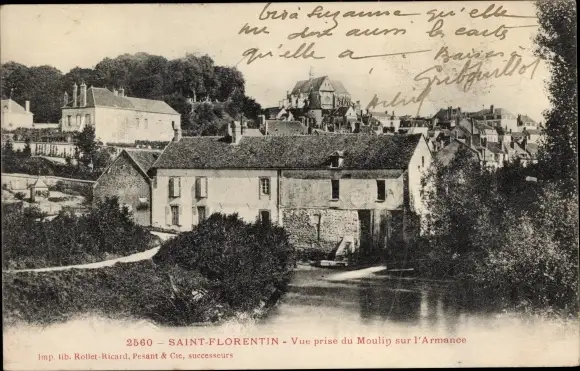 Suzanne qu'elle
me dis aussi les carts
qu'elle a Baisers
Gribouillot
2560 - SAINT-FLORENTIN - Vue prise du Moulin sur l'Armance
Imp. lib. Rollet-Ricard, Pesant & Cie, successeurs